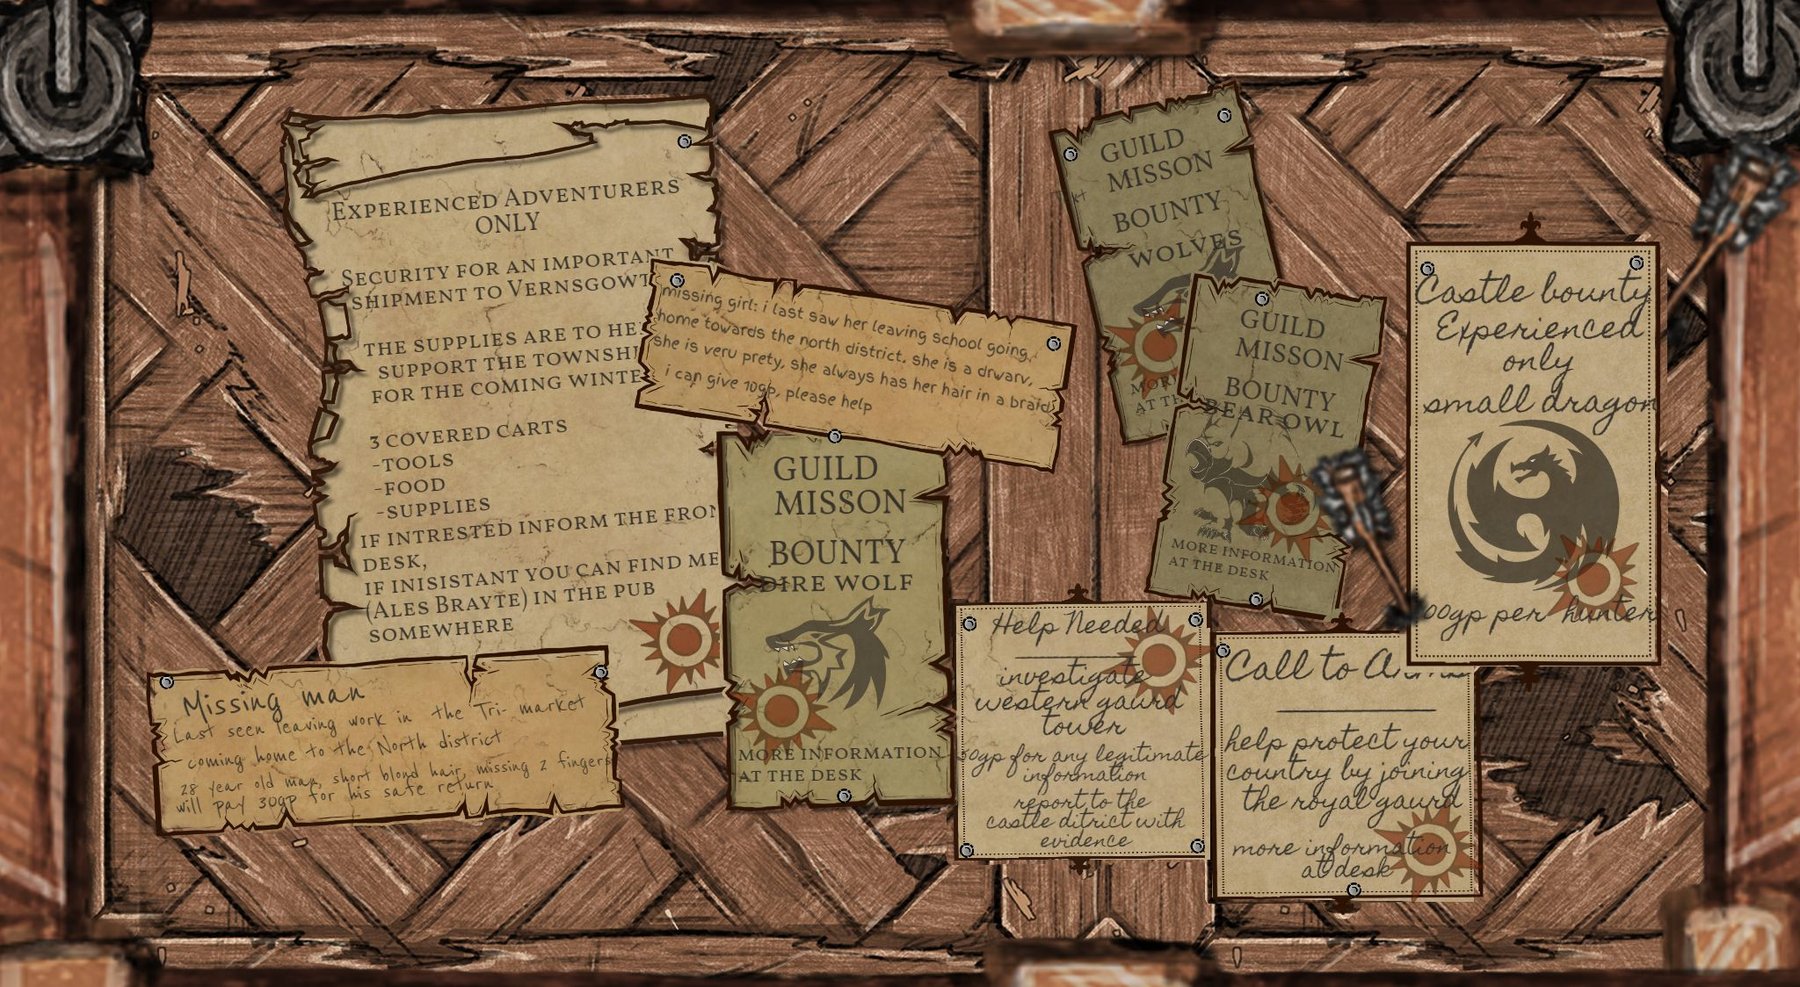 Experienced Adventurers
only
Security for an important
shipment to Vernsgowt
the supplies are to he
support the townshi
for the coming winte
3 covered carts
-tools
-food
-supplies
if intrested inform the fron
desk,
if inisistant you can find me
(Ales Brayte) in the pub
somewhere
missing girl: i last saw her leaving school going,
home towards the north district. she is a drwarv,
she is veru prety, she always has her hair in a braid
i can give 10gp, please help
Missing man
Last seen leaving work in the Tri- market
coming home to the North district
28 year old man, short blond hair, missing 2 fingers
will pay 30gp for his safe return
GUILD
MISSON
BOUNTY
DIRE WOLF
MORE INFORMATION
AT THE DESK
GUILD
MISSON
BOUNTY
WOLVES
MOR
AT TH
GUILD
MISSON
BOUNTY
BEAR OWL
MORE INFORMATION
AT THE DESK
Castle bounty
Experienced
only
small dragon
00gp per hunter
Help Needed
investigate
western gaurd
tower
50gp for any legitimate
information
report to the
castle ditrict with
evidence
Call to
help protect your
country by joining
the royal gaurd
more information
at desk